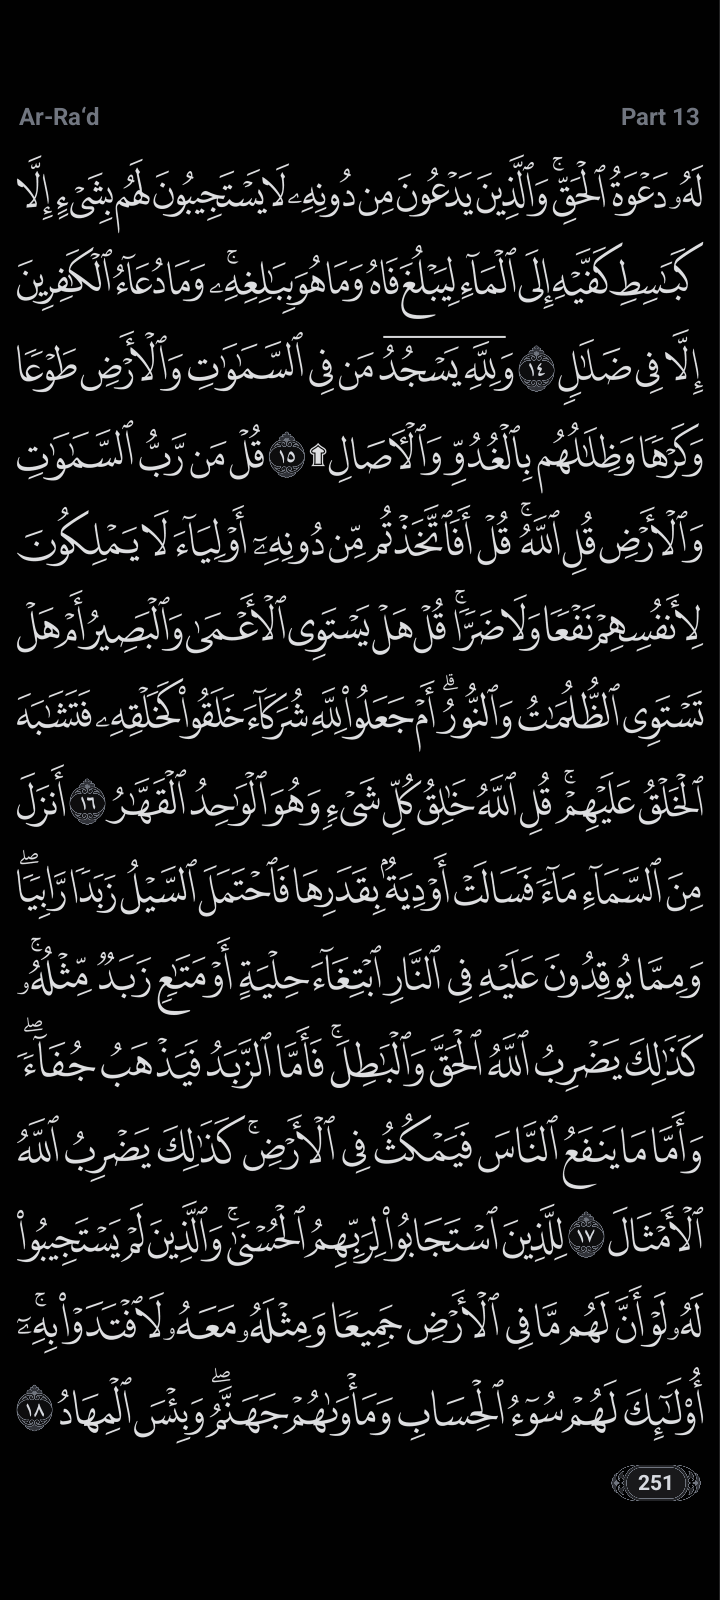 Ar-Ra‘d Part 13
لَهُۥ دَعْوَةُ ٱلْحَقِّ ۚ وَٱلَّذِينَ يَدْعُونَ مِن دُونِهِۦ لَا يَسْتَجِيبُونَ لَهُم بِشَىْءٍ إِلَّا
كَبَـٰسِطِ كَفَّيْهِ إِلَى ٱلْمَآءِ لِيَبْلُغَ فَاهُ وَمَا هُوَ بِبَـٰلِغِهِۦ ۚ وَمَا دُعَآءُ ٱلْكَـٰفِرِينَ
إِلَّا فِى ضَلَـٰلٍ ١٤ وَلِلَّهِ يَسْجُدُ مَن فِى ٱلسَّمَـٰوَٰتِ وَٱلْأَرْضِ طَوْعًا
وَكَرْهًا وَظِلَـٰلُهُم بِٱلْغُدُوِّ وَٱلْـَٔاصَالِ ۩ ١٥ قُلْ مَن رَّبُّ ٱلسَّمَـٰوَٰتِ
وَٱلْأَرْضِ قُلِ ٱللَّهُ ۚ قُلْ أَفَٱتَّخَذْتُم مِّن دُونِهِۦٓ أَوْلِيَآءَ لَا يَمْلِكُونَ
لِأَنفُسِهِمْ نَفْعًا وَلَا ضَرًّا ۚ قُلْ هَلْ يَسْتَوِى ٱلْأَعْمَىٰ وَٱلْبَصِيرُ أَمْ هَلْ
تَسْتَوِى ٱلظُّلُمَـٰتُ وَٱلنُّورُ ۗ أَمْ جَعَلُوا۟ لِلَّهِ شُرَكَآءَ خَلَقُوا۟ كَخَلْقِهِۦ فَتَشَـٰبَهَ
ٱلْخَلْقُ عَلَيْهِمْ ۚ قُلِ ٱللَّهُ خَـٰلِقُ كُلِّ شَىْءٍ وَهُوَ ٱلْوَٰحِدُ ٱلْقَهَّـٰرُ ١٦ أَنزَلَ
مِنَ ٱلسَّمَآءِ مَآءً فَسَالَتْ أَوْدِيَةٌۢ بِقَدَرِهَا فَٱحْتَمَلَ ٱلسَّيْلُ زَبَدًا رَّابِيًا ۖ
وَمِمَّا يُوقِدُونَ عَلَيْهِ فِى ٱلنَّارِ ٱبْتِغَآءَ حِلْيَةٍ أَوْ مَتَـٰعٍ زَبَدٌ مِّثْلُهُۥ ۚ
كَذَٰلِكَ يَضْرِبُ ٱللَّهُ ٱلْحَقَّ وَٱلْبَـٰطِلَ ۚ فَأَمَّا ٱلزَّبَدُ فَيَذْهَبُ جُفَآءً ۖ
وَأَمَّا مَا يَنفَعُ ٱلنَّاسَ فَيَمْكُثُ فِى ٱلْأَرْضِ ۚ كَذَٰلِكَ يَضْرِبُ ٱللَّهُ
ٱلْأَمْثَالَ ١٧ لِلَّذِينَ ٱسْتَجَابُوا۟ لِرَبِّهِمُ ٱلْحُسْنَىٰ ۚ وَٱلَّذِينَ لَمْ يَسْتَجِيبُوا۟
لَهُۥ لَوْ أَنَّ لَهُم مَّا فِى ٱلْأَرْضِ جَمِيعًا وَمِثْلَهُۥ مَعَهُۥ لَٱفْتَدَوْا۟ بِهِۦٓ ۚ
أُو۟لَـٰٓئِكَ لَهُمْ سُوٓءُ ٱلْحِسَابِ وَمَأْوَىٰهُمْ جَهَنَّمُ ۖ وَبِئْسَ ٱلْمِهَادُ ١٨
251